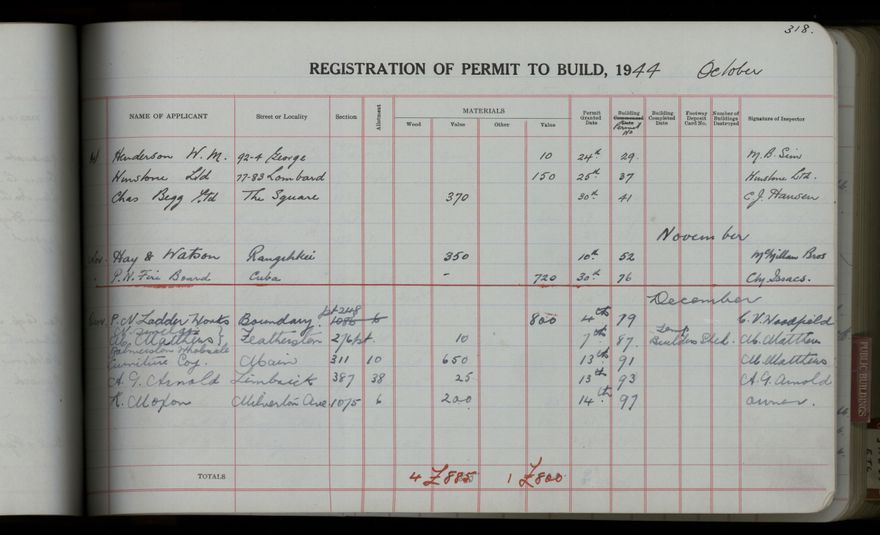 318.
REGISTRATION OF PERMIT TO BUILD, 1944 October
NAME OF APPLICANT Street or Locality Section Allotment MATERIALS Permit Granted Date Building Commenced Date Permit No Building Completed Date Footway Deposit Card No. Number of Buildings Destroyed Signature of Inspector
Wood Value Other Value
Henderson W. M. 92-4 George 10 24th 29 M. B. Sim
Hunstone Ltd 77-83 Lombard 150 25th 37 Hunstone Ltd.
Chas Begg Ltd The Square 370 30th 41 C. J. Hansen
November
Nov. Hay & Watson Rangitikei 350 10th 52 McMillan Bros
P. N. Fire Board Cuba - 720 30th 76 Chy Isaacs.
December
P. N. Ladder Works Boundary. 1086 6 800 4th 79 C. V. Woodfield
M. Matthews } Featherston 276 pt 10 7th 87 Temp Builders Shed. M. Matthews
Palmerston Wholesale
Furniture Coy. Main 311 10 650 13th 91 M. Matthews
A. G. Arnold Limbrick 387 38 25 13th 93 A. G. Arnold
R. Moxon Milverton Ave 1075 6 200 14th 97 owner.
TOTALS 4 £885 1 £800
PUBLIC BUILDINGS